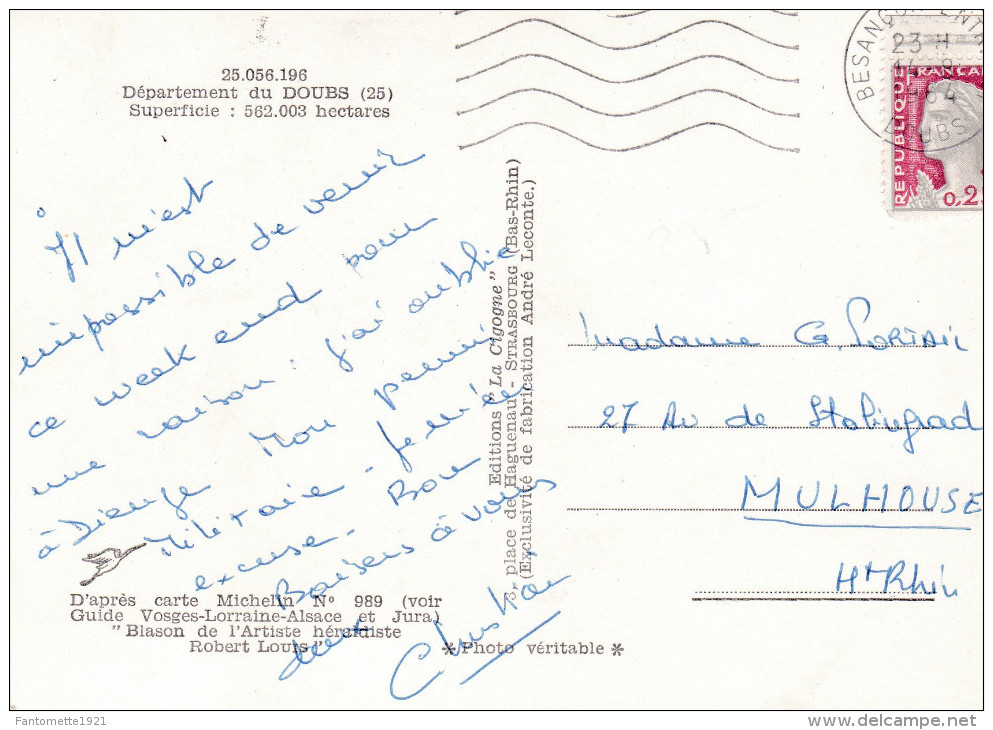 25.056.196
Département du DOUBS (25)
Superficie : 562.003 hectares
Il m'est
impossible de venir
ce week end pour
une raison : j'ai oublié
à Dieuze mon permis
Militaire - je m'en
excuse - Bon
deux Baisers à vous
Christian
D'après carte Michelin Nº 989 (voir
Guide Vosges-Lorraine-Alsace et Jura)
"Blason de l'Artiste héraldiste
Robert Louis"
Editions "La Cigogne"
3, place de Haguenau - STRASBOURG (Bas-Rhin)
(Exclusivité de fabrication André Leconte.)
* Photo véritable *
BESANÇON
23 H
DOUBS
REPUBLIQUE FRANCAI
0,2
Madame G.
27 Av de Stalingrad
MULHOUSE
Ht Rhin
Fantomette1921
delcampe.net